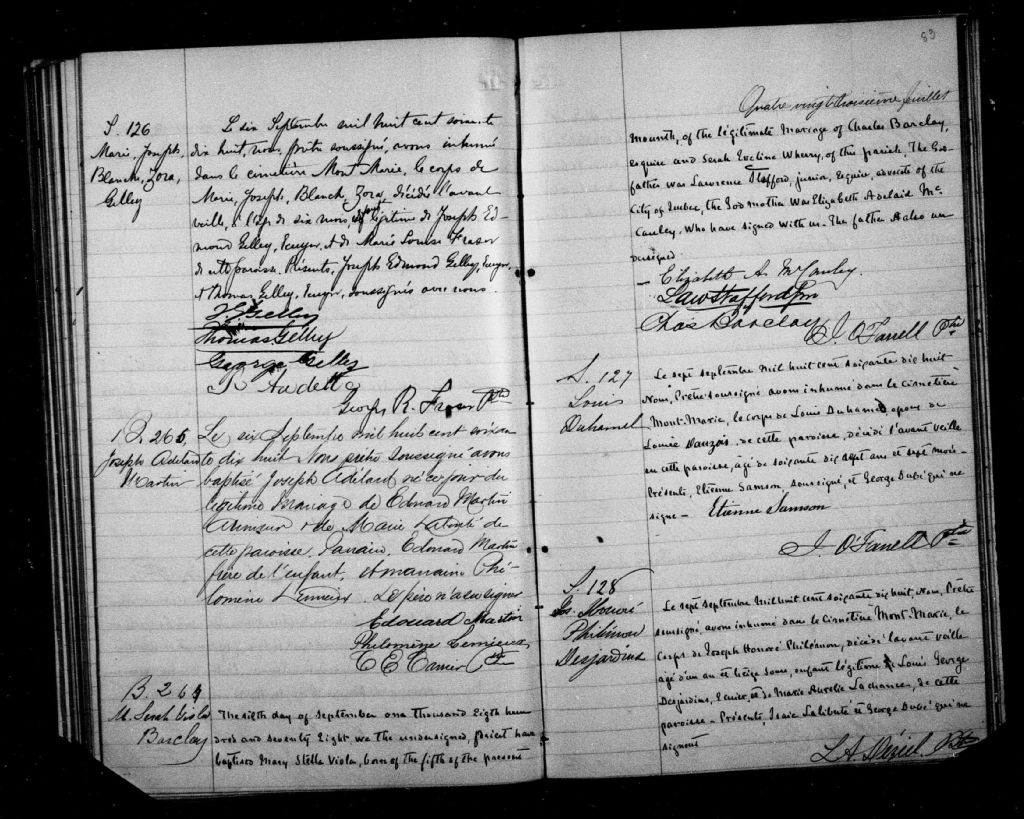 S. 126
Marie, Joseph,
Blanche, Zora,
Gelley
Le six Septembre mil huit cent soixante
dix huit, nous, prêtre soussigné, avons inhumé
dans le cimetière Mont Marie, le corps de
Marie, Joseph, Blanch, Zora, décidée l'avant
veille, à l'age de six mois, légitime de Joseph Ed-
mond Gelley, Ecuyer, et de Marie Louise Fraser
de cette paroisse. Présents, Joseph Edmond Gelley, Ecuyer,
et Thomas Gelley, Ecuyer, soussignés avec nous.
J E Gelley
Thomas Gelley
George Gelley
R Audette
George R. Fraser Ptre
B. 265
Joseph Adelard
Martin
Le six Septembre mil huit cent soixan
te dix huit Nous prêtre soussigné avons
baptisé Joseph Adélard né ce jour du
légitime mariage de Edouard Martin
Armeur & de Marie Labonté de
cette paroisse. Parrain, Edouard Martin
frère de l'enfant, et marraine Phi-
lomène Lemieux. Le père n'a su signer
Edouard Martin
Philomène Lemieux
C E Carrier Ptre
B. 264
M. Serah Viola
Barclay
The Sixth day of September one thousand Eigth hun
dred and seventy Eight, we the undersigned, priest have
baptised Mary Stella Viola, born of the fifth of the present
83
Quatre vingt troisième feuillet
mounth, of the légitimate Marriage of Charles Barclay,
Esquire and Serah Eveline Wherry, of this parish. The God-
father was Lawrence Stafford, junior, Esquire, advocate of the
City of Quebec, the Godmother was Elizabeth Adelaid Mc
Cauley, Who have signed with us. The father also un
dersigned
— Elizabeth A. McCauley.
Law Stafford Jnr
Chas Barclay
J. O'Farrell Ptre
S. 127
Louis
Duhamel
Le sept septembre mil huit cent soixante dix huit
Nous, Prêtre soussigné avons inhumé dans le Cimetière
Mont-Marie, le corps de Louis Duhamel epoux de
Louise Dauzois, de cette paroisse, décidé l'avant veille
en cette paroisse, agé de soixante dix sept ans et sept mois—
Présents, Etienne Samson soussigné et George Dubé qui ne
signe — Etienne Samson
J O'Farrell Ptre
S. 128
Jos. Honoré
Philémon
Desjardins
Le sept septembre mil huit cent soixante dix huit Nous, Prêtre
soussigné, avons inhumé dans le Cimetière Mont-Marie, le
Corps de Joseph Honoré Philémon, décidé l'avant veille
agé d'un an et treize jours, enfant légitime de Louis George
Desjardins, Ecuier, et de Marie Aurelie Lachance, de cette
paroisse — Présents, Isaie Laliberté et George Dubé qui ne
signent
L. A. Déziel Ptre